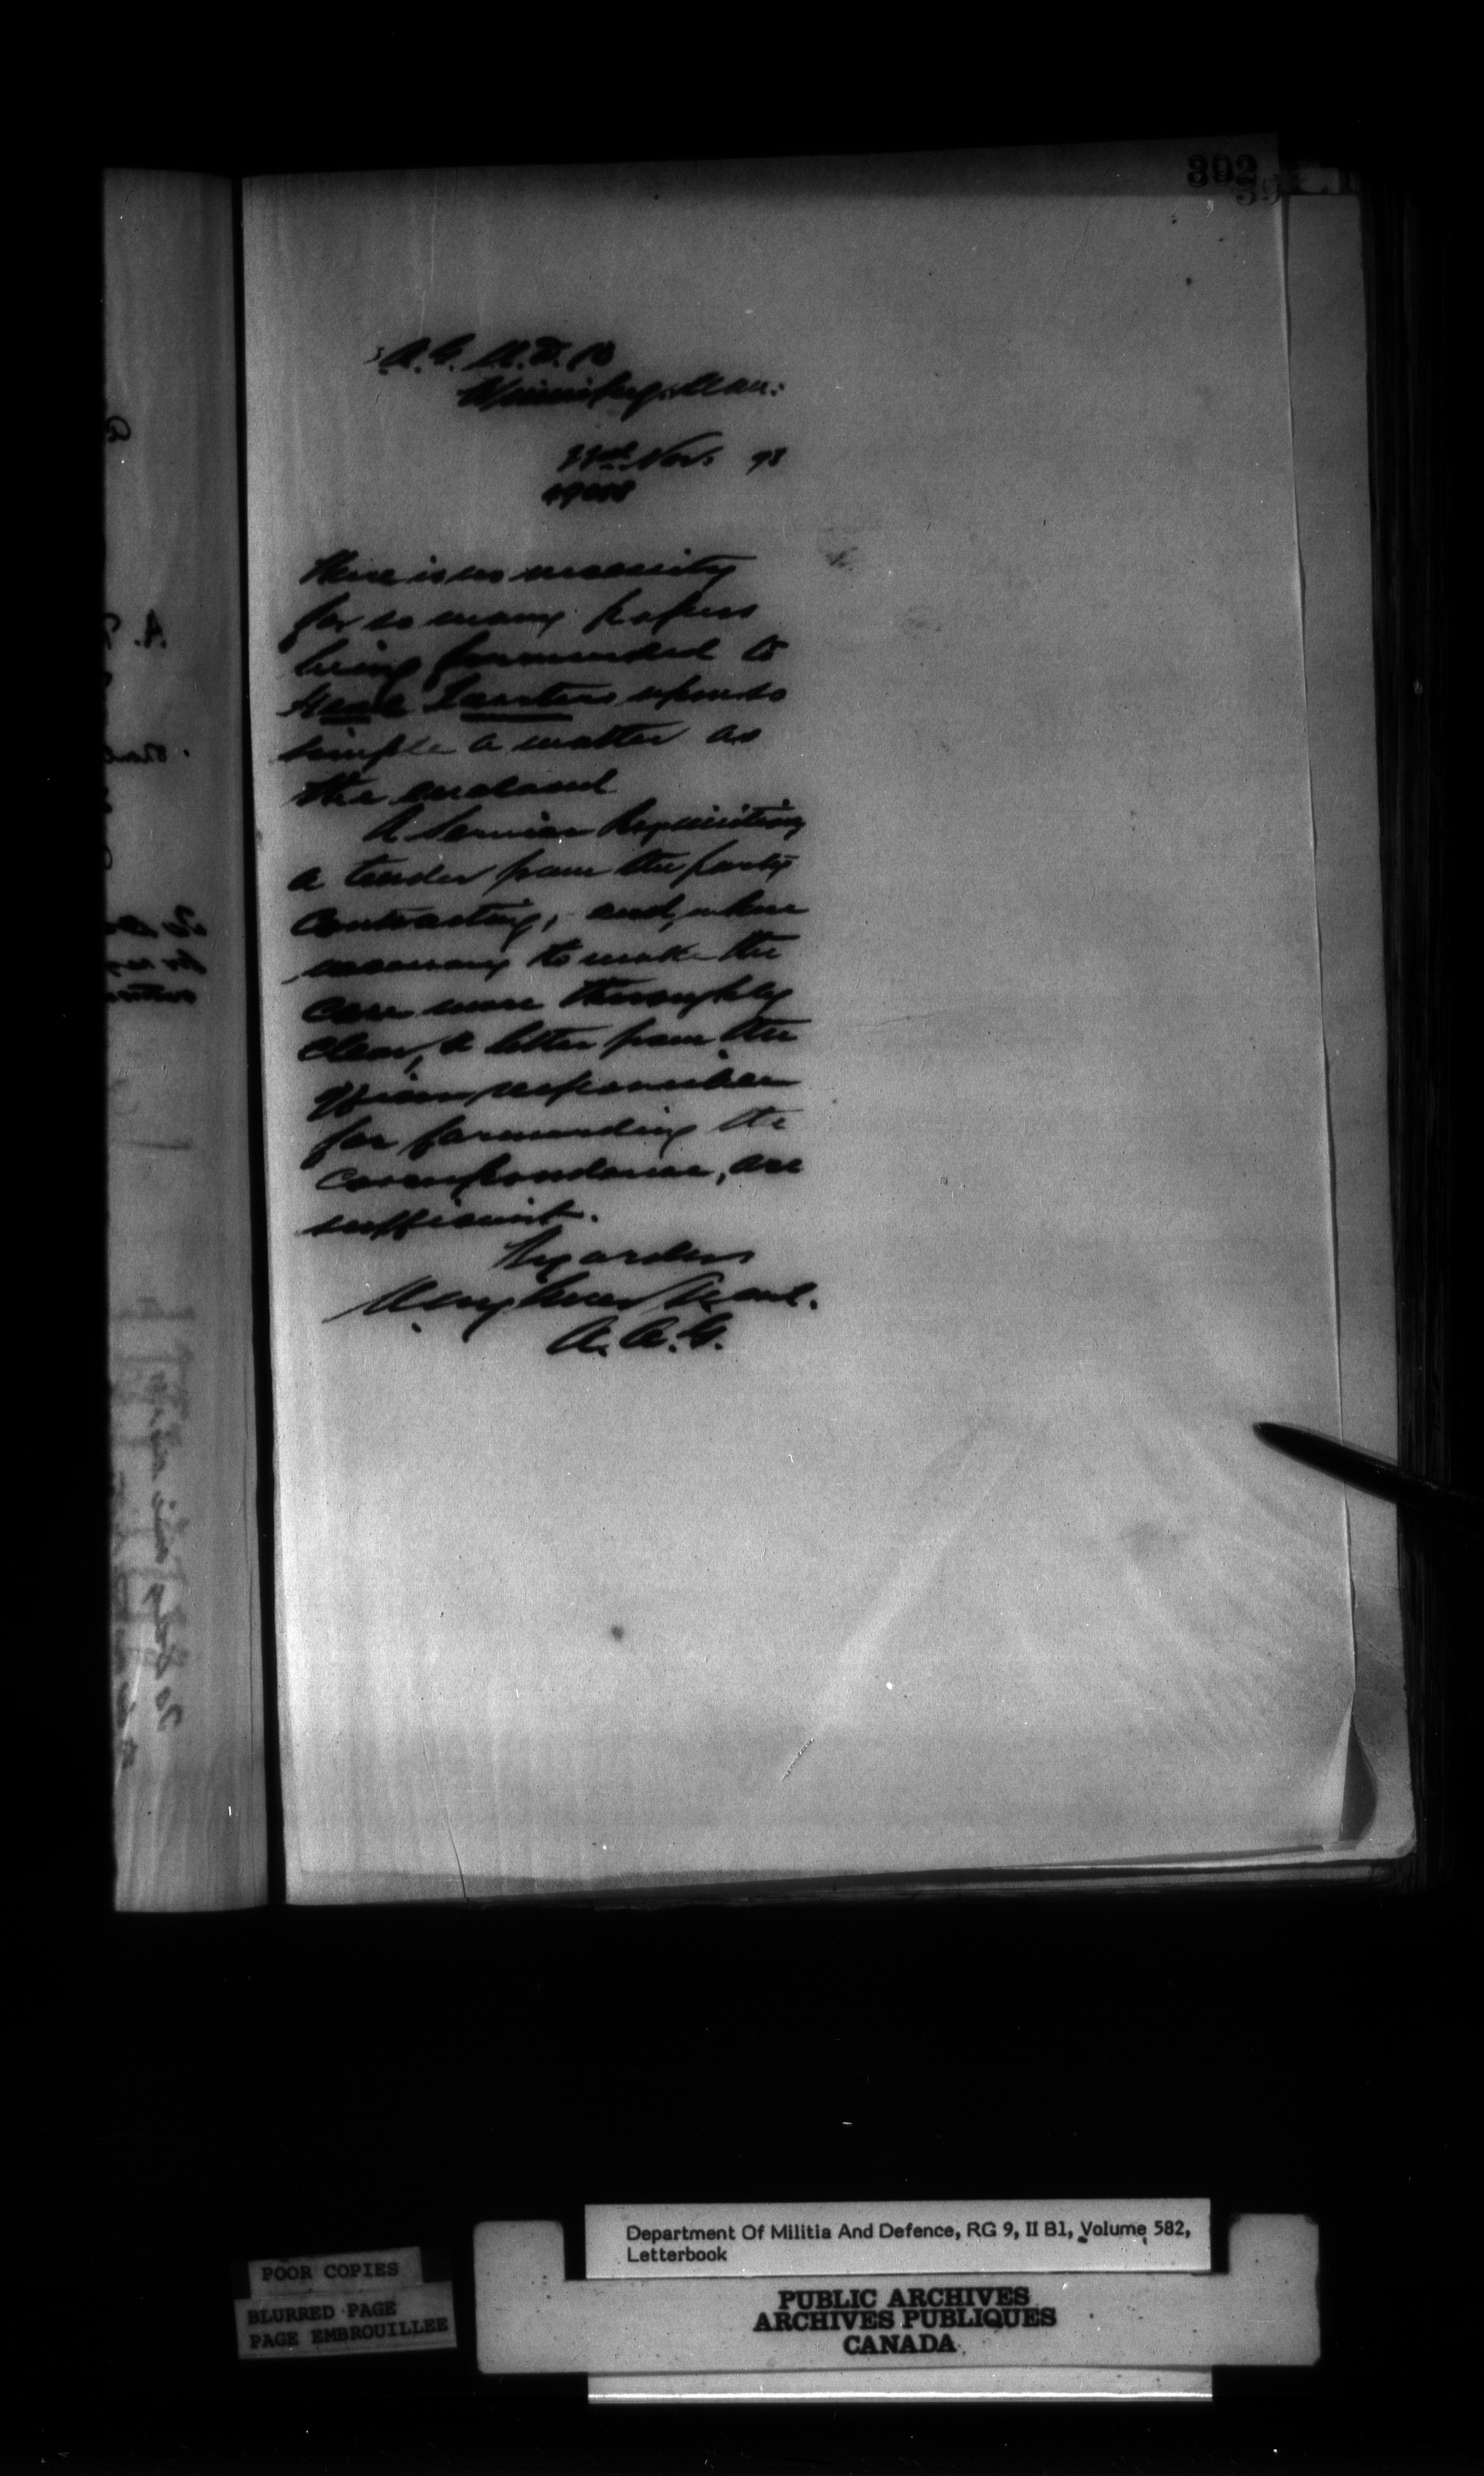 392
A. G. M. D. 10
Winnipeg. Man.
Nov. 98
19088
There is no necessity
for so many papers
being forwarded to
Head Quarters upon so
simple a matter as
the enclosed
A Service Requisition
a tender from the party
contracting, and, where
necessary to make the
case more thoroughly
clear, a letter from the
officer responsible
for forwarding the
correspondence, are
sufficient.
By order
A. A. G.
Department Of Militia And Defence, RG 9, II B1, Volume 582,
Letterbook
POOR COPIES
BLURRED PAGE
PAGE EMBROUILLEE
PUBLIC ARCHIVES
ARCHIVES PUBLIQUES
CANADA